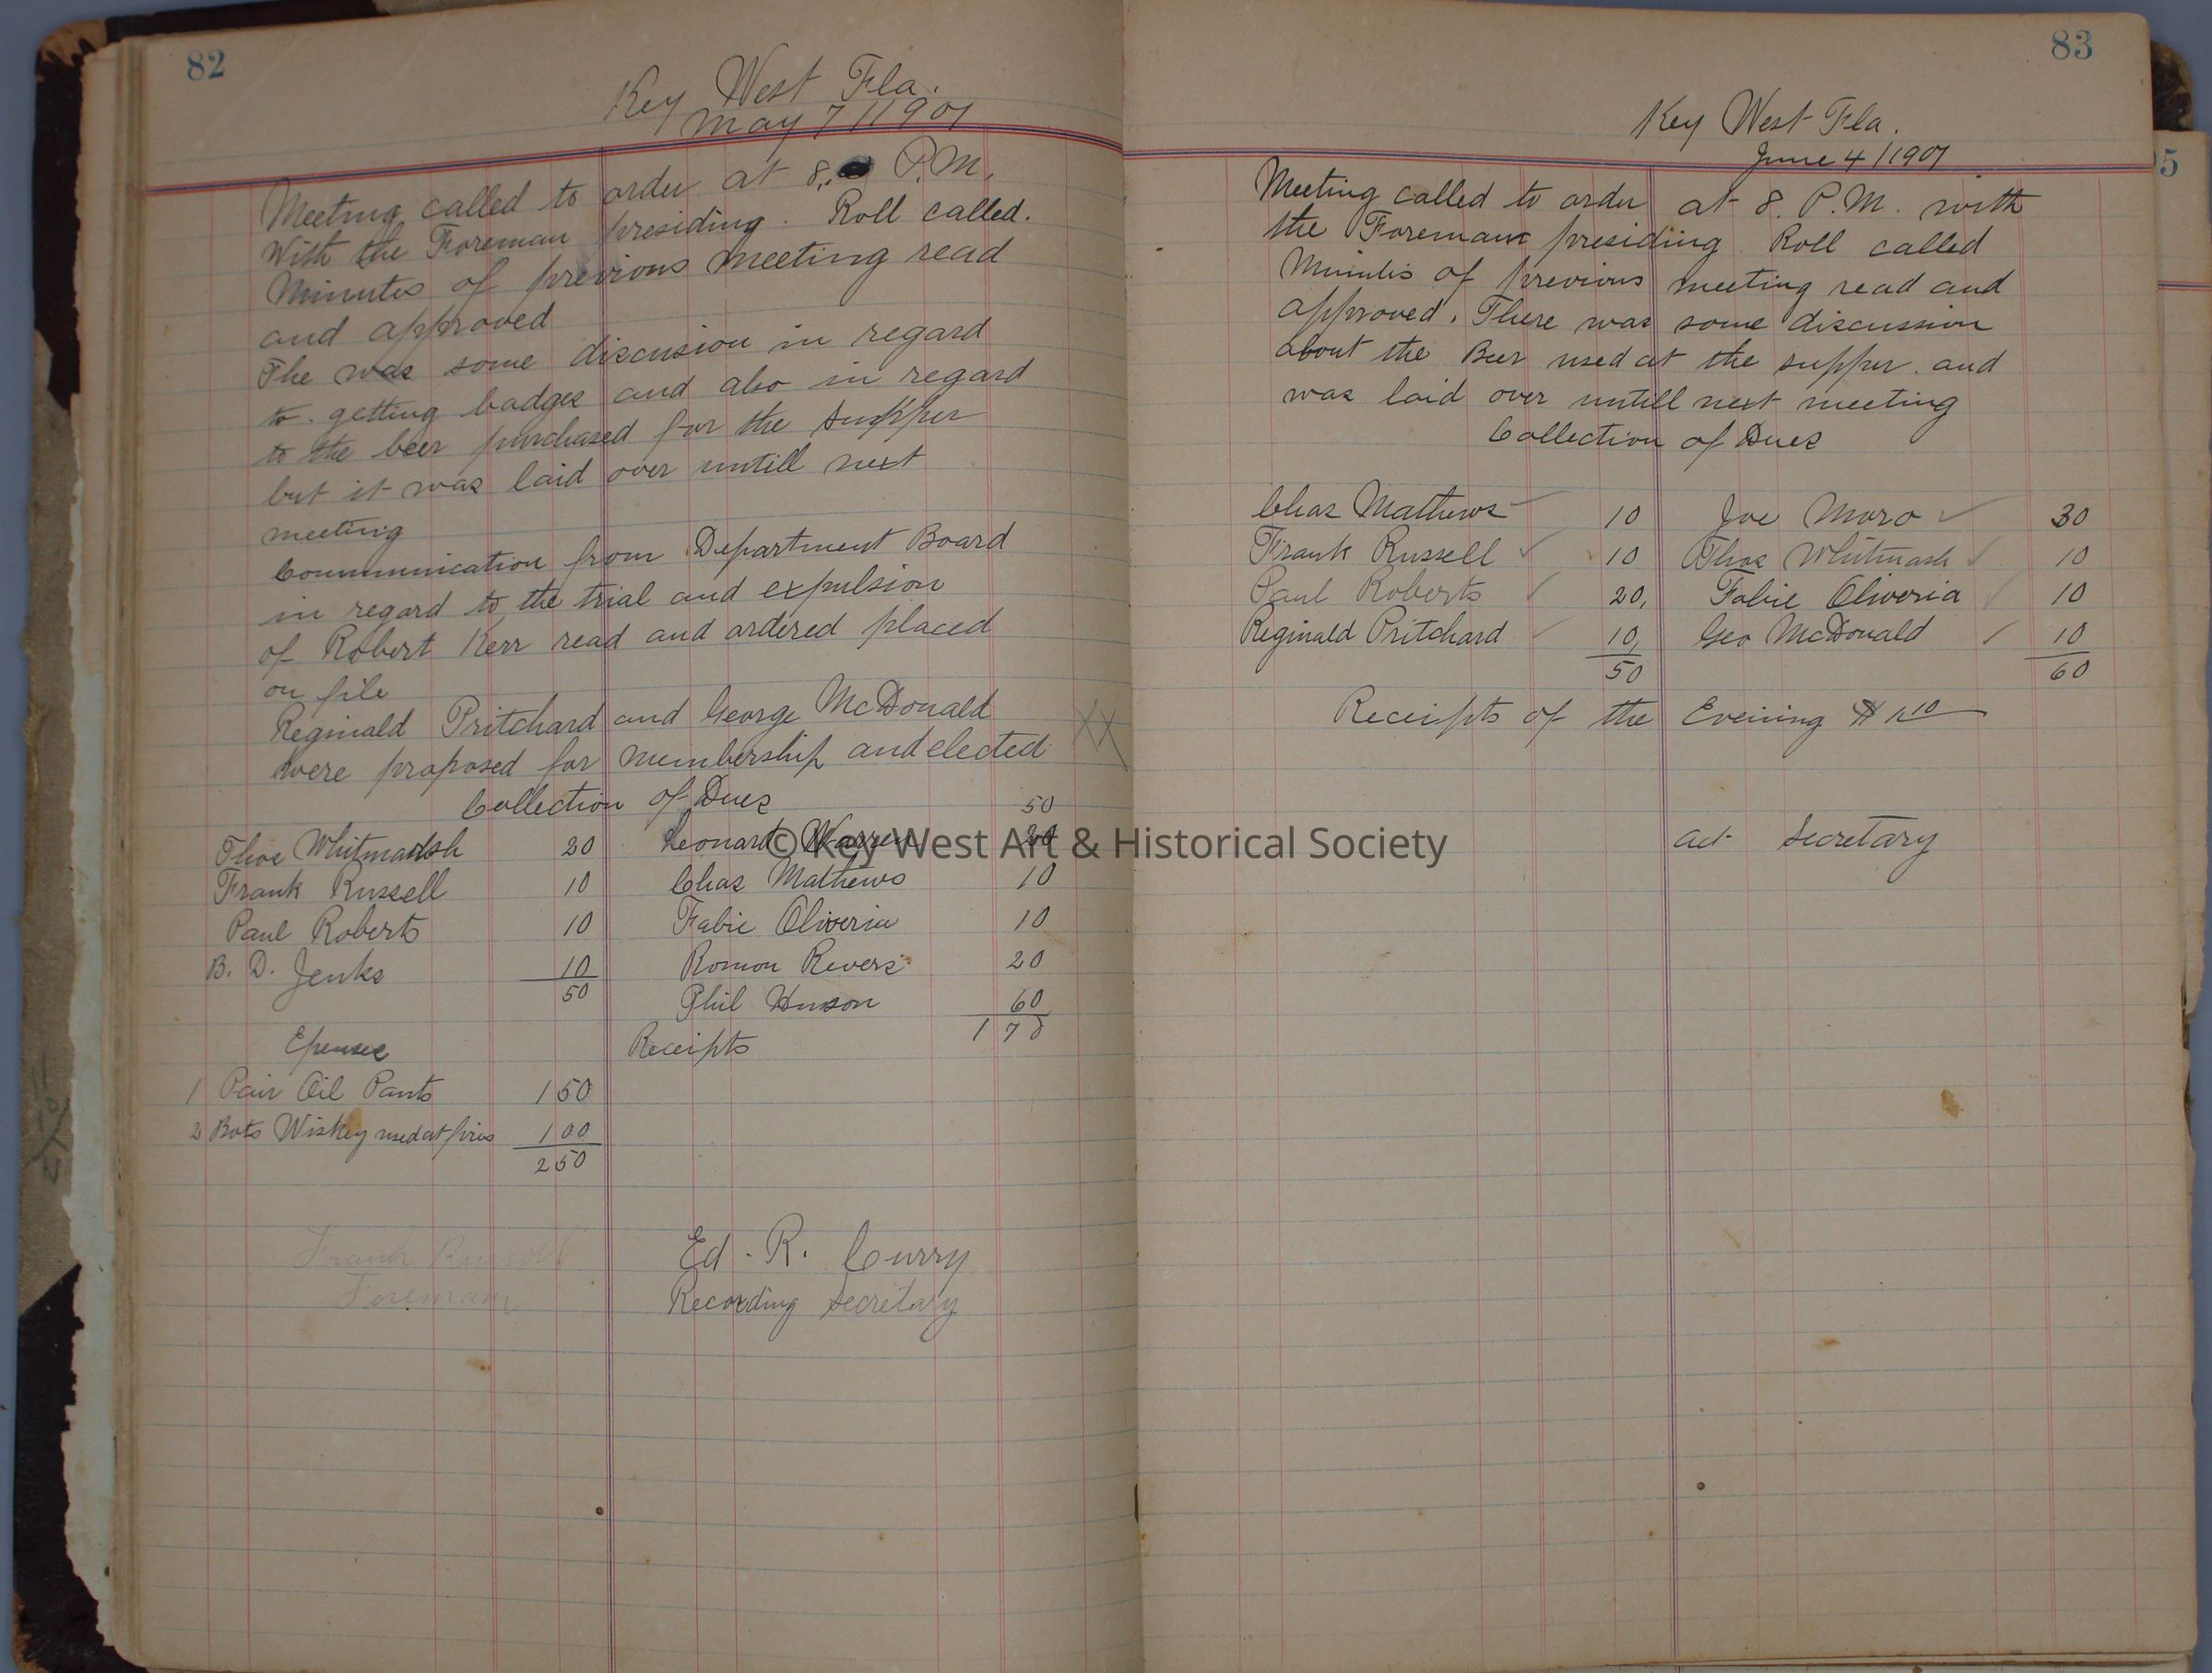 82
Key West Fla.
May 7 / 1907
Meeting called to order at 8 P.M,
With the Foreman presiding. Roll called.
Minutes of previous meeting read
and approved
The was some discusion in regard
to getting badges and also in regard
to the beer purchased for the supper
but it was laid over untill next
meeting
Communication from Department Board
in regard to the trial and expulsion
of Robert Kerr read and ordered placed
on file
Reginald Pritchard and George McDonald XX
were proposed for membership and elected
Collection of Dues
50
Thos Whitmarsh 20 Leonard Warren 20
Frank Russell 10 Chas Mathews 10
Paul Roberts 10 Fabie Oliveria 10
B. D. Jenks 10 Romon Rivers 20
50 Phil Huson 60
Epenses Receipts 170
1 Pair Oil Pants 150
2 Bots Wiskey used at fires 100
250
Frank Russell Ed. R. Curry
Foreman Recording Secretary
83
Key West Fla.
June 4 / 1907
Meeting called to order at 8. P.M. with
the Foreman presiding. Roll called
Minutis of previous meeting read and
approved. There was some discussion
about the Beer used at the supper. and
was laid over untill next meeting
Collection of Dues
Chas Mathews 10 Joe Moro 30
Frank Russell 10 Thos Whitmash 10
Paul Roberts 20, Fabie Oliveria 10
Reginald Pritchard 10, Geo McDonald 10
50 60
Receipts of the Evening $ 1.10
Act Secretary
© Key West Art & Historical Society